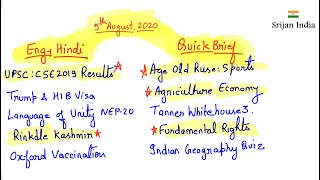 5th August, 2020
Srijan India
Eng + Hindi
UPSC: CSE 2019 Results
Trump & H1B Visa
Language of Unity NEP-20
Rinkdle Kashmir
Oxford Vaccination
Quick Brief
Age Old Ruse: Sports
Agriculture Economy
Tanner Whitehouse 3.
Fundamental Rights
Indian Geography Quiz